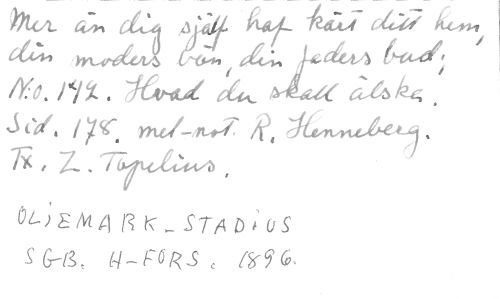 Mer än dig själf haf kärt ditt hem,
din moders bön, din faders bud;
N:o. 142. Hvad du skall älska.
Sid. 178. mel-not. R. Henneberg.
Tx. Z. Topelius.
OLIEMARK-STADIUS
SGB. H-FORS. 1896.